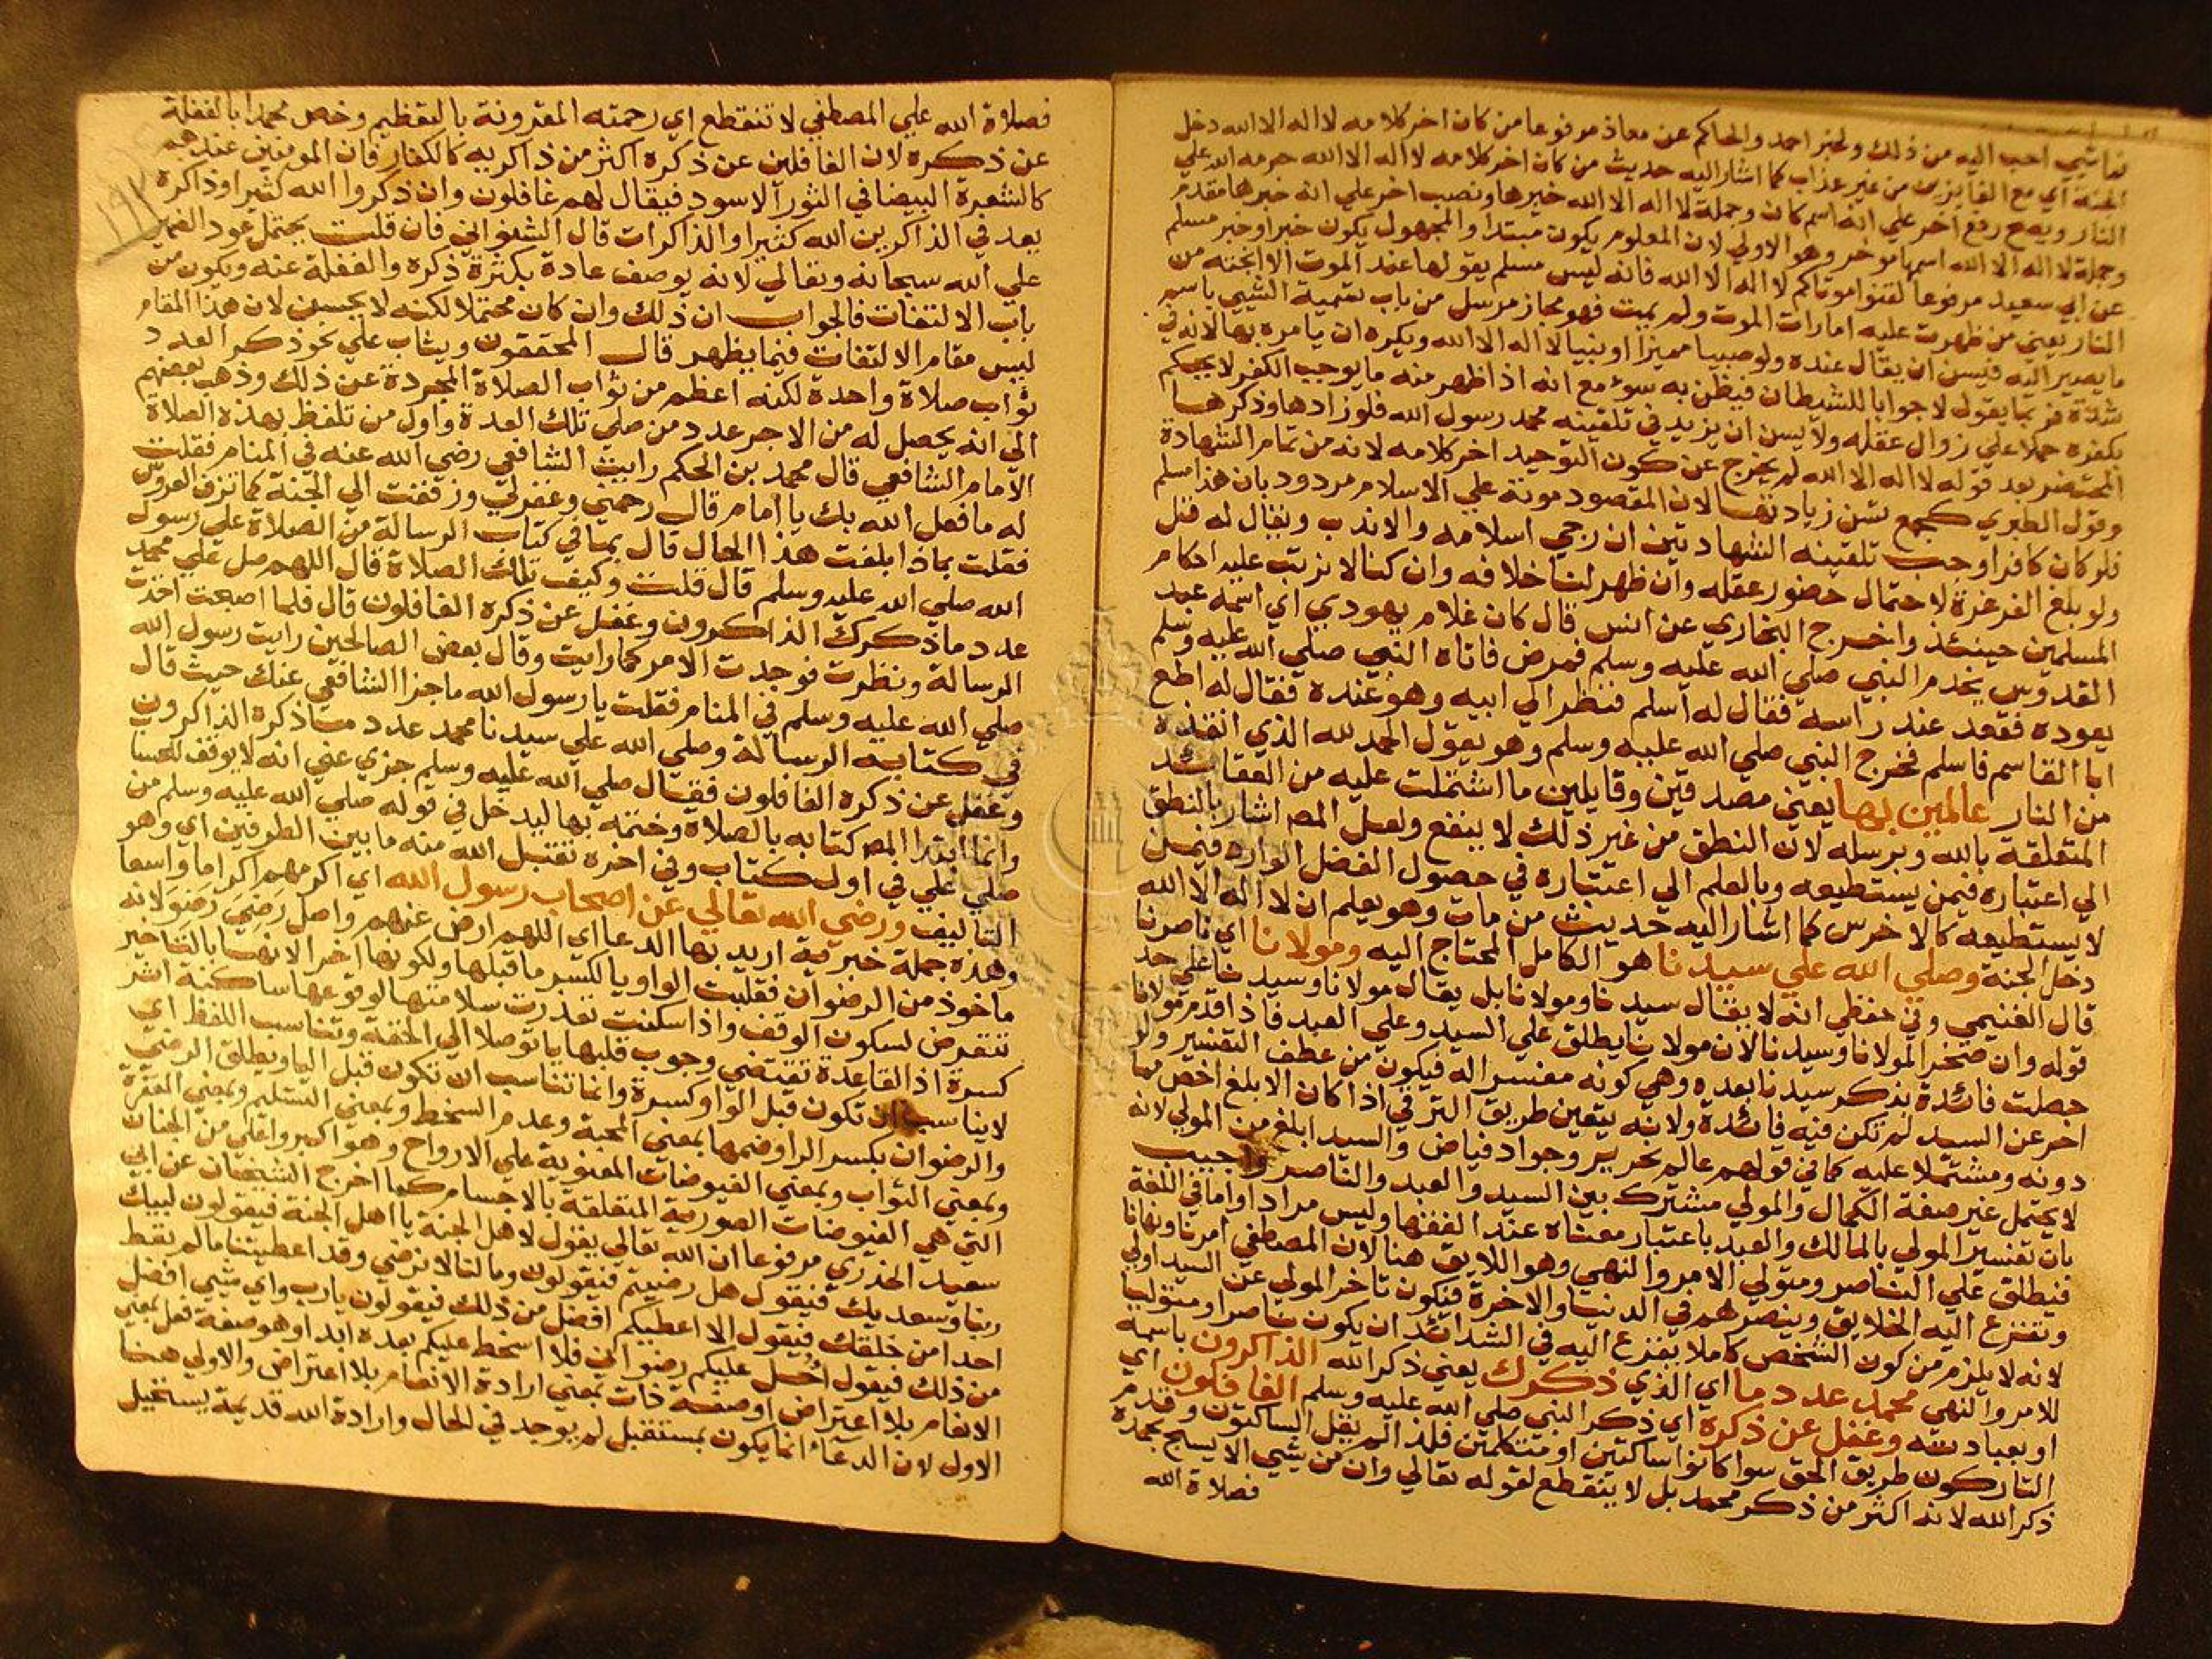 فما شيء احب اليه من ذلك ولخبر احمد والحاكم عن معاذ مرفوعا من كان اخر كلامه لا اله الا الله دخل
الجنة اي مع الفايزين من غير عذاب كما اشار اليه حديث من كان اخر كلامه لا اله الا الله حرمه الله علي
النار ويصح رفع اخر علي انه اسم كان وجملة لا اله الا الله خبرها ونصب اخر علي انه خبرها مقدم
وجملة لا اله الا الله اسمها موخر وهو الاولي لان المعلوم يكون مبتدا والمجهول يكون خبرا وخبر مسلم
عن ابي سعيد مرفوعا لقنوا موتاكم لا اله الا الله فانه ليس مسلم يقولها عند الموت الا انجته من
النار يعني من ظهرت عليه امارات الموت ولم يمت فهو مجاز مرسل من باب تسمية الشيي باسم
ما يصير اليه فيسن ان يقال عنده ولو صبيا مميزا او نبيا لا اله الا الله ويكره ان يامره بها لانه في
شدة فربما يقول لا جوابا للشيطان فيظن به سوء مع انه اذا ظهر منه ما يوجب الكفر لا يحكم
بكفره حملا علي زوال عقله ولا يسن ان يزيد في تلقينه محمد رسول الله فلو زادها وذكرها
المحتضر بعد قوله لا اله الا الله لم يخرج عن كون التوحيد اخر كلامه لانه من تمام الشهادة
وقول الطبري كجمع تسن زيادتها لان المقصود موته علي الاسلام مردود بان هذا مسلم
فلو كان كافرا وجب تلقينه الشهادتين ان رجي اسلامه والا ندب ويقال له قتل
ولو بلغ الغرغرة لاحتمال حضور عقله وان ظهر لنا خلافه وان كنا لا نرتب عليه احكام
المسلمين حينئذ واخرج البخاري عن انس قال كان غلام يهودي اي اسمه عبد
القدوس يخدم النبي صلي الله عليه وسلم فمرض فاتاه النبي صلي الله عليه وسلم
يعوده فقعد عند راسه فقال له اسلم فنظر الي ابيه وهو عنده فقال له اطع
ابا القاسم فاسلم فخرج النبي صلي الله عليه وسلم وهو يقول الحمد لله الذي انقذه
من النار عالمين بها يعني مصدقين وقايلين ما اشتملت عليه من العقائد
المتعلقة بالله وبرسله لان النطق من غير ذلك لا ينفع ولعل المص اشار بالنطق
الي اعتباره فيمن يستطيعه وبالعلم الي اعتباره في حصول الفضل الوارد فيمن
لا يستطيعه كالاخرس كما اشار اليه حديث من مات وهو يعلم ان لا اله الا الله
دخل الجنة وصلي الله علي سيدنا هو الكامل المحتاج اليه ومولانا اي ناصرنا
قال الغنيمي وفي حفظي انه لا يقال سيدنا ومولانا بل يقال مولانا وسيدنا علي حد
قوله وان صخرا لمولانا وسيدنا لان مولانا يطلق علي السيد وعلي العبد فاذا قدم مولانا
حصلت فائدة بذكر سيدنا بعده وهي كونه مفسرا له فيكون من عطف التفسير ولو
اخر عن السيد لم تكن فيه فائدة ولانه يتعين طريق الترقي اذا كان الابلغ اخص مما
دونه ومشتملا عليه كما في قولهم عالم نحرير وجواد فياض والسيد ابلغ من المولي لانه
لا يحتمل غير صفة الكمال والمولي مشترك بين السيد والعبد والناصر واجيب
بان تفسير المولي بالمالك والعبد باعتبار معناه عند الفقها وليس مرادا واما في اللغة
فيطلق علي الناصر ومتولي الامر والنهي وهو اللايق هنا لان المصطفي امرنا ونهانا
وتفزع اليه الخلايق وينصرهم في الدنيا والاخرة فيكون تاخر المولي عن السيد اولي
لانه لا يلزم من كون الشخص كاملا يفزع اليه في الشدائد ان يكون ناصرا ومتوليا
للامر والنهي محمد عدد ما اي الذي ذكرك يعني ذكر الله الذاكرون باسمه
او بعبادته وغفل عن ذكره اي ذكر النبي صلي الله عليه وسلم الغافلون اي
التاركون طريق الحق سوا كانوا ساكتين او متكلمين فلذا لم يقل الساكتون وقدم
ذكر الله لانه اكثر من ذكر محمد بل لا ينقطع لقوله تعالي وان من شيي الا يسبح بحمده
فصلاة الله
فصلاة الله علي المصطفي لا تنقطع اي رحمته المقرونة بالتعظيم وخص محمدا بالغفلة
عن ذكره لان الغافلين عن ذكره اكثر من ذاكريه كالكفار فان المومنين عندهم
كالشعرة البيضا في الثور الاسود فيقال لهم غافلون وان ذكروا الله كثيرا وذاكره
يعد في الذاكرين الله كثيرا والذاكرات قال الشنواني فان قلت يحتمل عود الضمير
علي الله سبحانه وتعالي لانه يوصف عادة بكثرة ذكره والغفلة عنه ويكون من
باب الالتفات فالجواب ان ذلك وان كان محتملا لكنه لا يحسن لان هذا المقام
ليس مقام الالتفات فيما يظهر قال المحققون ويثاب علي نحو ذكر العدد
ثواب صلاة واحدة لكنه اعظم من ثواب الصلاة المجردة عن ذلك وذهب بعضهم
الي انه يحصل له من الاجر عدد من صلي تلك العدة واول من تلفظ بهذه الصلاة
الامام الشافعي قال محمد بن الحكم رايت الشافعي رضي الله عنه في المنام فقلت
له ما فعل الله بك يا امام قال رحمني وغفر لي وزففت الي الجنة كما تزف العروس
فقلت بماذا بلغت هذا الحال قال بما في كتاب الرسالة من الصلاة علي رسول
الله صلي الله عليه وسلم قال قلت وكيف تلك الصلاة قال اللهم صل علي محمد
عدد ما ذكرك الذاكرون وغفل عن ذكره الغافلون قال فلما اصبحت اخذت
الرسالة ونظرت فوجدت الامر كما رايت وقال بعض الصالحين رايت رسول الله
صلي الله عليه وسلم في المنام فقلت يا رسول الله ما جزا الشافعي عنك حيث قال
في كتابه الرسالة وصلي الله علي سيدنا محمد عدد ما ذكره الذاكرون
وغفل عن ذكره الغافلون فقال صلي الله عليه وسلم جزي عني انه لا يوقف للحساب
وانما ابتدا المص كتابه بالصلاة وختمه بها ليدخل في قوله صلي الله عليه وسلم من
صلي علي في اول كتاب وفي اخره تقبل الله منه ما بين الطرفين اي وهو
التاليف ورضي الله تعالي عن اصحاب رسول الله اي اكرمهم اكراما واسعا
وهذه جملة خبرية اريد بها الدعا اي اللهم ارض عنهم واصل رضي رضو لانه
ماخوذ من الرضوان فقلبت الواو يا لكسر ما قبلها ولكونها اخرا لانها بالتاخير
تتعرض لسكون الوقف واذا سكنت تعذرت سلامتها لوقوعها ساكنة اثر
كسرة اذ القاعدة تقتضي وجوب قلبها يا توصلا الي الخفة وتناسب اللفظ اي
لا يناسب ان تكون قبل الواو كسرة وانما تناسب ان تكون قبل اليا ويطلق الرضي
والرضوان بكسر الرا وضمها بمعني المحبة وعدم السخط وبمعني التسليم وبمعني المغفرة
وبمعني الثواب وبمعني الفيوضات المعنوية علي الارواح وهو اكبر واعلي من الجنات
التي هي الفيوضات الصورية المتعلقة بالاجسام كما اخرج الشيخان عن ابي
سعيد الخدري مرفوعا ان الله تعالي يقول لاهل الجنة يا اهل الجنة فيقولون لبيك
ربنا وسعديك فيقول هل رضيتم فيقولون وما لنا لا نرضي وقد اعطيتنا ما لم تعط
احدا من خلقك فيقول الا اعطيكم افضل من ذلك فيقولون يا رب واي شيي افضل
من ذلك فيقول احل عليكم رضواني فلا اسخط عليكم بعده ابدا وهو صفة فعل بمعني
الانعام بلا اعتراض او صفة ذات بمعني ارادة الانعام بلا اعتراض والاولي هنا
الاول لان الدعاء انما يكون بمستقبل لم يوجد في الحال وارادة الله قديمة يستحيل